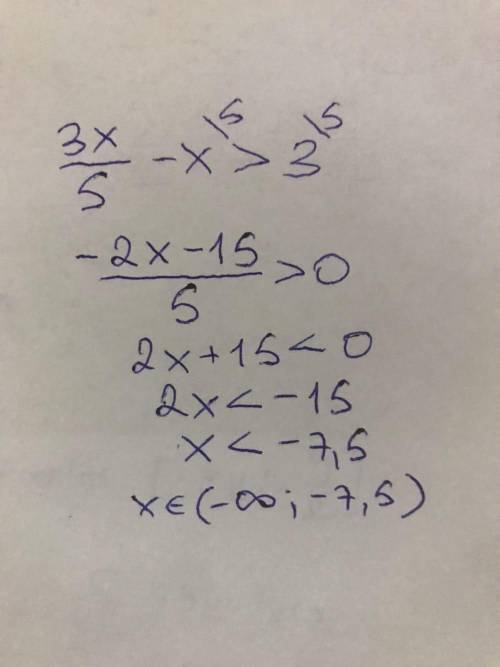 3x/5 - x\5 > 3\5
(-2x-15)/5 > 0
2x+15 < 0
2x < -15
x < -7,5
x∈(-∞; -7,5)